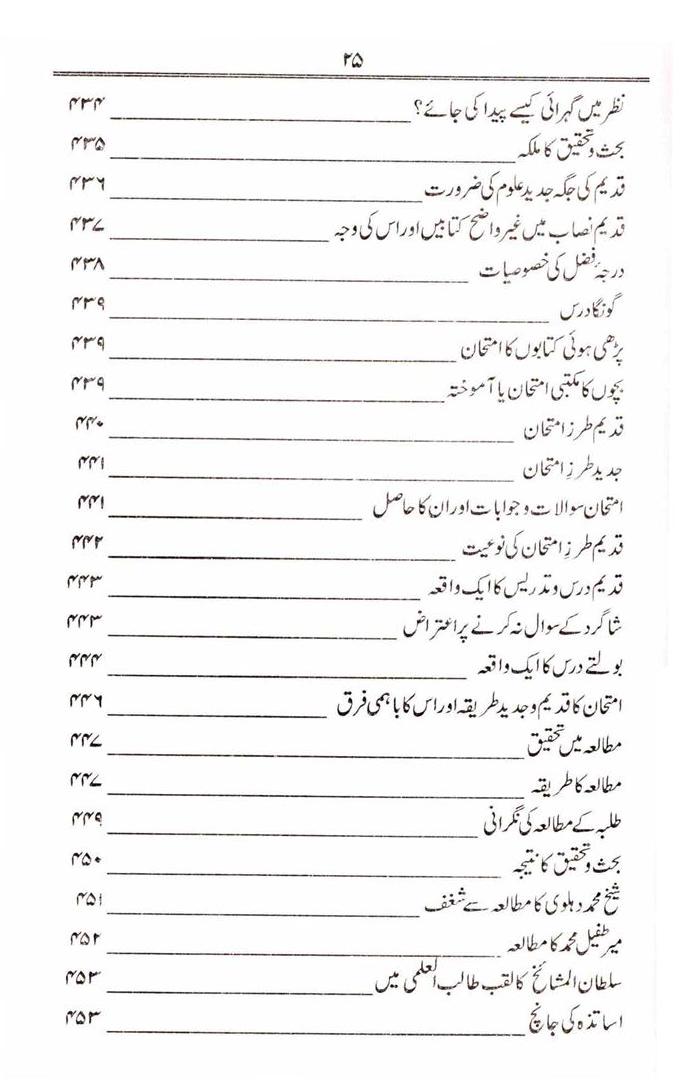 ۲۵
نظر میں گہرائی کیسے پیدا کی جائے؟ ۴۳۴
بحث و تحقیق کا ملکہ ۴۳۵
قدیم کی جگہ جدید علوم کی ضرورت ۴۳۶
قدیم نصاب میں غیر واضح کتابیں اور اس کی وجہ ۴۳۷
درجۂ فضل کی خصوصیات ۴۳۸
گونگا درس ۴۳۹
پڑھی ہوئی کتابوں کا امتحان ۴۳۹
بچوں کا مکتبی امتحان یا آموختہ ۴۳۹
قدیم طرز امتحان ۴۴۰
جدید طرزِ امتحان ۴۴۱
امتحان سوالات و جوابات اور ان کا حاصل ۴۴۱
قدیم طرزِ امتحان کی نوعیت ۴۴۲
قدیم درس و تدریس کا ایک واقعہ ۴۴۳
شاگرد کے سوال نہ کرنے پر اعتراض ۴۴۳
بولتے درس کا ایک واقعہ ۴۴۴
امتحان کا قدیم و جدید طریقہ اور اس کا باہمی فرق ۴۴۶
مطالعہ میں تحقیق ۴۴۷
مطالعہ کا طریقہ ۴۴۷
طلبہ کے مطالعہ کی نگرانی ۴۴۹
بحث و تحقیق کا نتیجہ ۴۵۰
شیخ محمد دہلوی کا مطالعہ سے شغف ۴۵۱
میر طفیل محمد کا مطالعہ ۴۵۲
سلطان المشائخ کا لقب طالب العلمی میں ۴۵۳
اساتذہ کی جانچ ۴۵۳